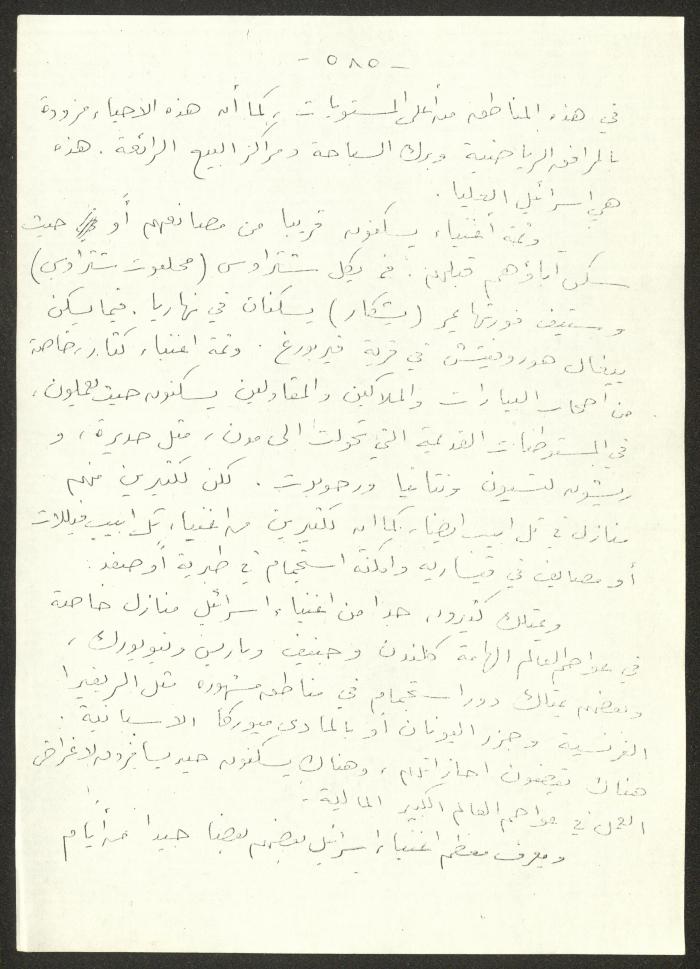 - ٥٨٥ -
في هذه المناطق من أعلى المستويات ، كما أن هذه الاحياء مزودة
بالمرافق الرياضية وبرك السباحة ومراكز البيع الرائعة . هذه
هي اسرائيل العليا .
وثمة أغنياء يسكنون قريبا من مصانعهم أو حيث
سكن آباؤهم قبلهم . فمايكل شتراوس (محلبوت شتراوس)
وستيف فورتهايمر (يشكار) يسكنان في نهاريا . فيما يسكن
ييغال هوروفيتش في قرية فيربورغ . وثمة اغنياء كثار ، خاصة
من أصحاب البيارات والملاكين والمقاولين يسكنون حيث يعملون ،
في المستوطنات القديمة التي تحولت الى مدن ، مثل حديرة ، و
ريشون لتسيون ونتانيا ورحوبوت . لكن لكثيرين منهم
منازل في تل ابيب ايضا ، كما ان لكثيرين من اغنياء تل ابيب فيللات
أو مصايف في قيساريه وامكنة استجمام في طبرية أو صفد .
ويمتلك كثيرون جدا من اغنياء اسرائيل منازل خاصة
في عواصم العالم الهامة كلندن وجنيف وباريس ونيويورك ،
وبعضهم يمتلك دور استجمام في مناطق مشهوره مثل الريفيرا
الفرنسية وجزر اليونان أو بالمادي ميوركا الاسبانية .
هناك يقضون اجازاتهم ، وهناك يسكنون حين يسافرون لاغراض
العمل في عواصم العالم الكبير المالية .
ويعرف معظم اغنياء اسرائيل بعضهم بعضا جيدا من أيام